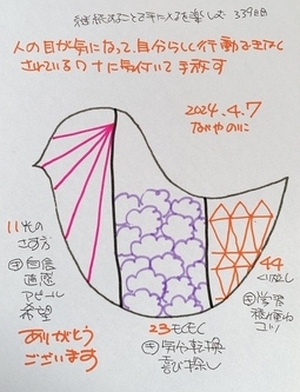 継続することで手に入るを楽しむ 339日目
人の目が気になって、自分らしく行動できなく
されているワナに気付いて手放す
2024.4.7
なやのりに
11光の
さす方
㋖自信
直感
アピール
希望
ありがとう
ございます
23もくもく
㋖気や転換
喜び探し
44
くり返し
㋖学習
積み重ね
コツ